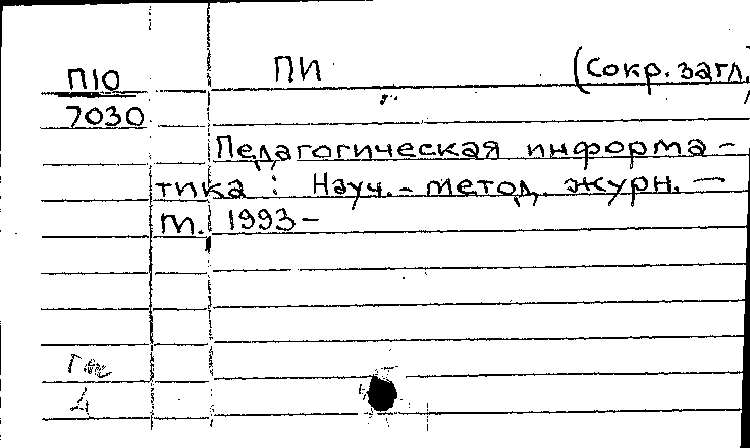 П10 ПИ (Сокр. загл.)
7030
Педагогическая информа-
тика : Науч.-метод. журн. —
М. 1993-